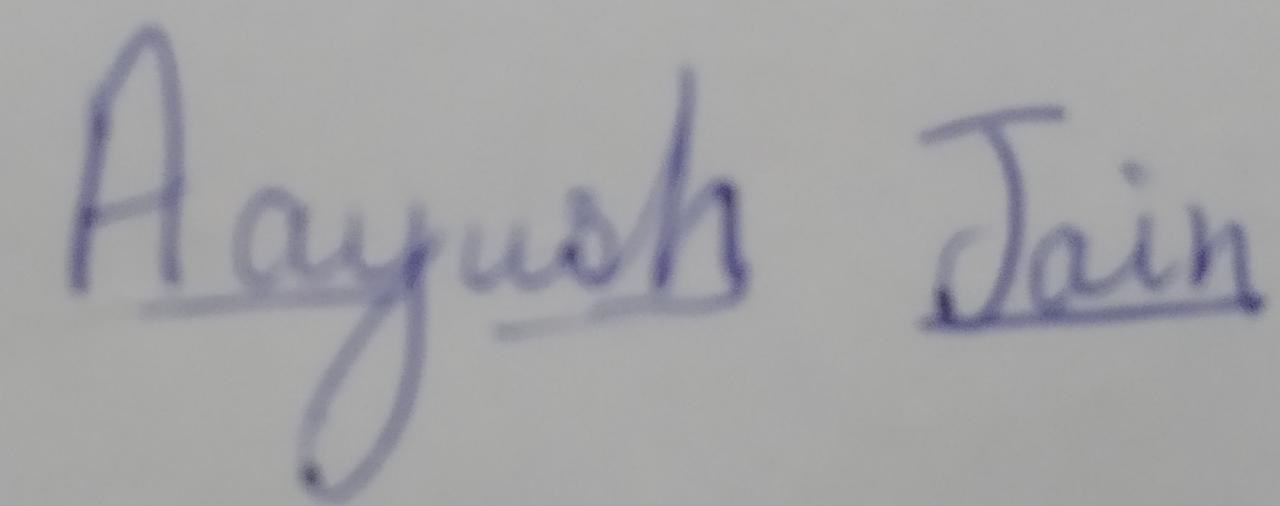 Aayush Jain